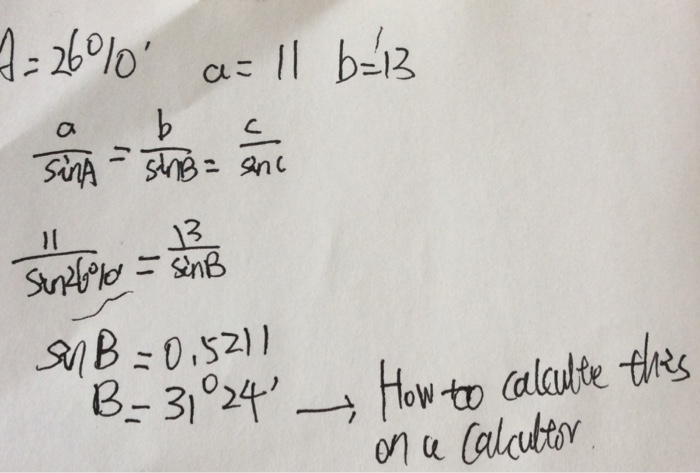 A = 26°10' a = 11 b = 13
a/sinA = b/sinB = c/sinC
11/sin26°10' = 13/sinB
sin B = 0.5211
B = 31°24' → How to calculte this
on a calcultor.